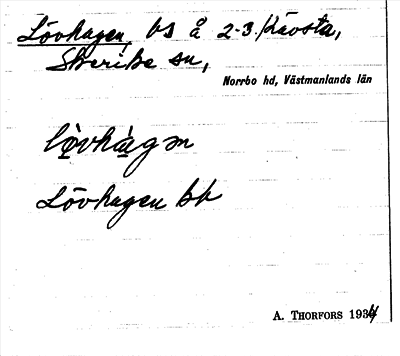 Lövhagen, bs å 2-3 Hävsta,
Skerike sn,
Norrbo hd, Västmanlands län
lövhag∂n
Lövhagen bb
A. THORFORS 1934